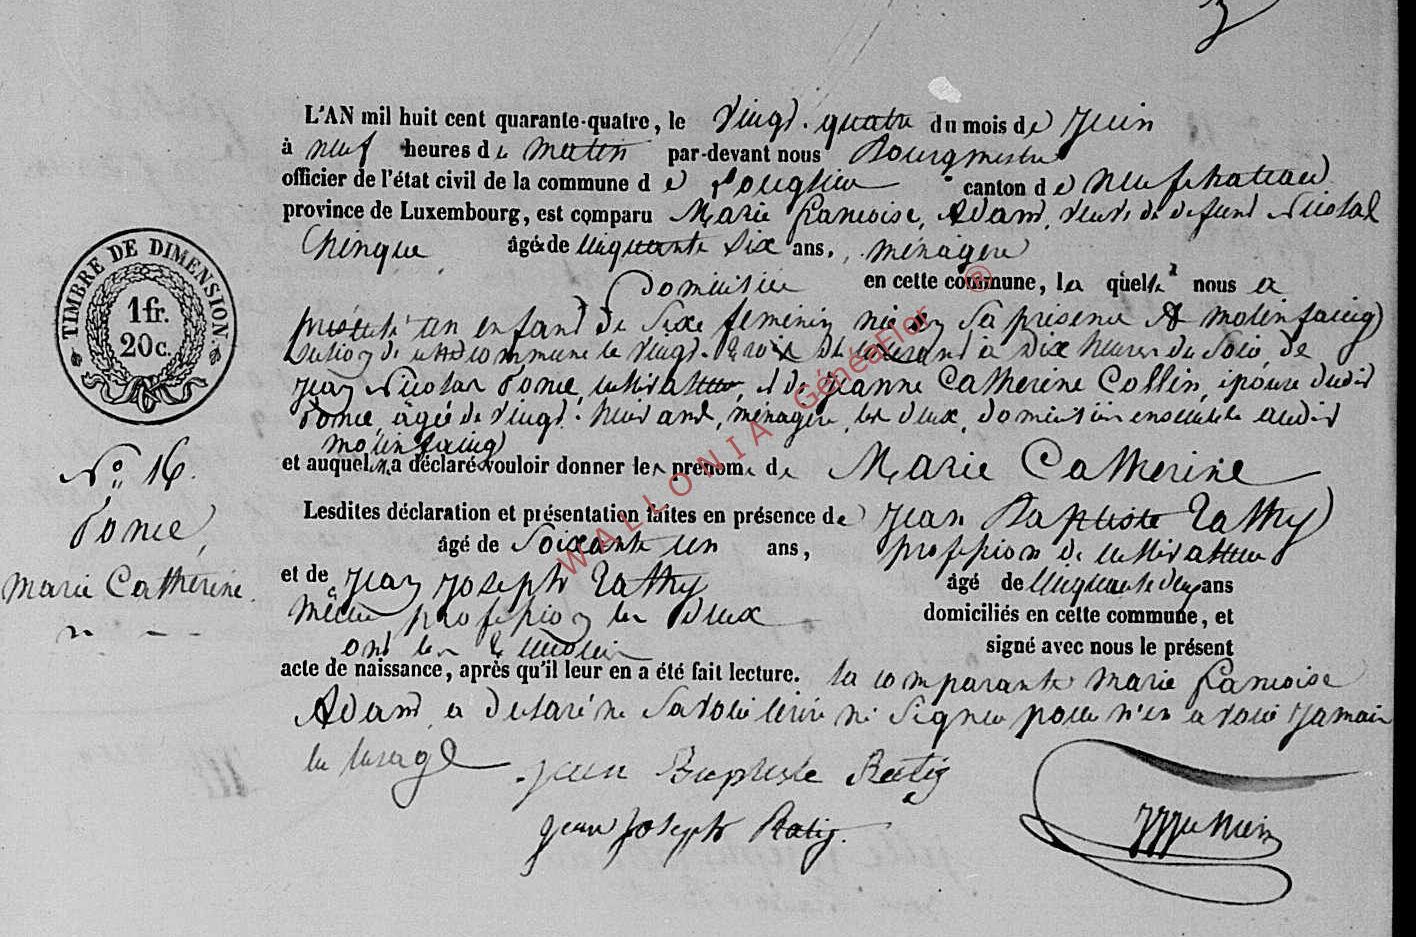 L'AN mil huit cent quarante-quatre, le vingt-quatre du mois de Juin
à neuf heures de matin par-devant nous Bourgmestre
officier de l'état civil de la commune de Longlier canton de Neufchateau
province de Luxembourg, est comparu Marie françoise Adam, veuve de defunt Nicolas
Chinque âgée de cinquante six ans, ménagere
Domiciliée en cette commune, laquelle nous a
présenté un enfant de sexe feminin né en sa présence à molinfaing
section de cette commune le vingt-trois du courant à dix heures du soir, de
Jean Nicolas Ponce, cultivateur, et de Jeanne Catherine Collin, épouse dudit
Ponce, âgée de vingt-neuf ans, ménagere, les deux domiciliés ensemble audit
molinfaing
et auquel elle a déclaré vouloir donner les prénoms de Marie Catherine
Lesdites déclaration et présentation faites en présence de Jean Baptiste Rathy
âgé de soixante un ans, profession de cultivateur
et de Jean Joseph Rathy âgé de cinquante deux ans
même profession les deux domiciliés en cette commune, et
ont les témoins signé avec nous le présent
acte de naissance, après qu'il leur en a été fait lecture. la comparante Marie françoise
Adam a déclaré ne savoir écrire ni signer pour n'en avoir jamais
eu l'usage
Jean Baptiste Ratiy
Jean Joseph Ratiy.
TIMBRE DE DIMENSION.
1 fr.
20 c.
N° 16.
Ponce,
Marie Catherine.
WALLONIA GénéaFlor ®